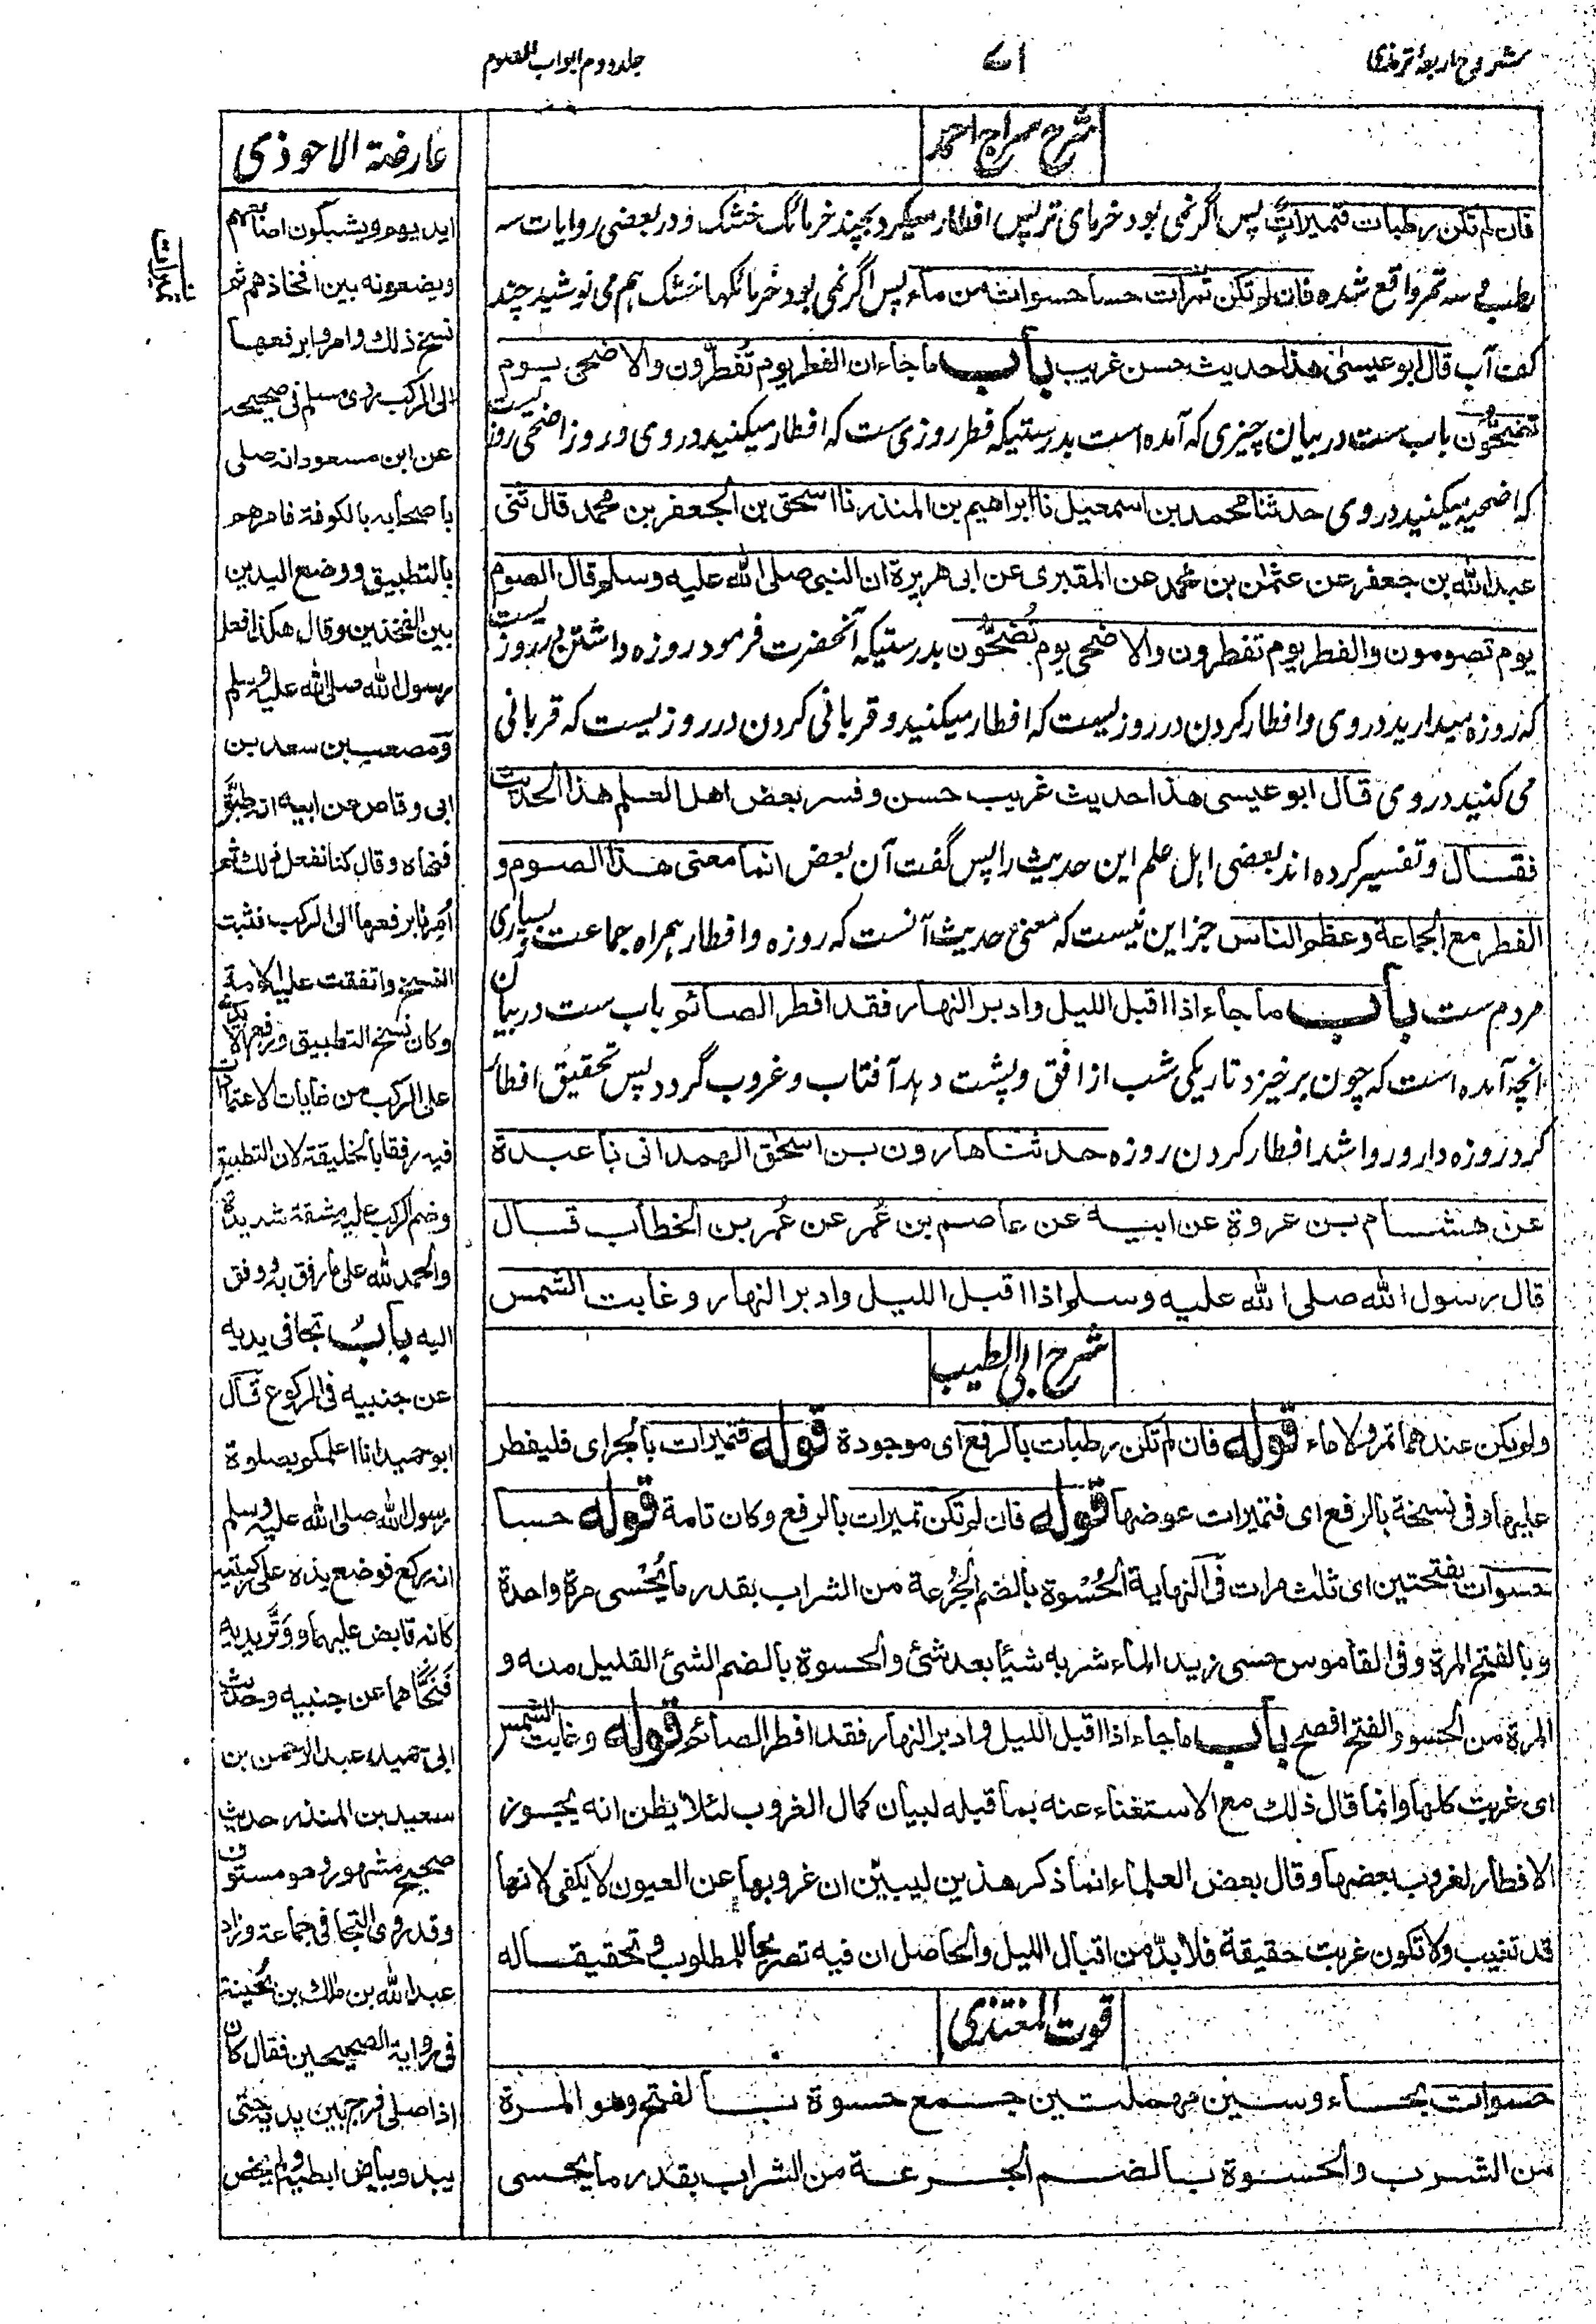 شروح اربعۂ ترمذی
۷۱
جلد دوم ابواب الصوم
شرح سراج احمد
فان لم تكن رطبات فتميرات پس اگر نمی بود خرمای تر پس افطار میکرد بچند خرمانگ خشک و در بعضی روایات سه
رطب و سه تمر واقع شده فان لم تكن تمرات حسا حسوات من ماء پس اگر نمی بود خرمانکها خشک هم می نوشید چند
کف آب قال ابو عيسىٰ هذا حديث حسن غريب باب ما جاء ان الفطر يوم تُفطرون والاضحى يوم
تضحّون باب ست در بیان چیزی که آمده است بدرستیکه فطر روزی ست که افطار میکنید در وی و روز اضحی روزیست
که اضحیه میکنید در وی حدثنا محمد بن اسمعيل نا ابراهيم بن المنذر نا اسحق بن الجعفر بن محمد قال ثنی
عبد الله بن جعفر عن عثمٰن بن محمد عن المقبرى عن ابى هريرة ان النبى صلى الله عليه وسلم قال الصوم
يوم تصومون والفطر يوم تفطرون والاضحى يوم تُضحّون بدرستیکه آنحضرت فرمود روزه داشتن در روزیست
که روزه میدارید در وی و افطار کردن در روزیست که افطار میکنید و قربانی کردن در روزیست که قربانی
می کنید در وی قال ابو عيسى هذا حديث غريب حسن وفسر بعض اهل العلم هذا الحديث
فقال و تفسیر کرده اند بعضی اهل علم این حدیث را پس گفت آن بعض انما معنى هذا الصوم و
الفطر مع الجماعة وعظم الناس جز این نیست که معنی حدیث آنست که روزه و افطار همراه جماعت و بسیاری
مردم ست باب ما جاء اذا اقبل الليل وادبر النهار فقد افطر الصائم باب ست در بیان
آنچه آمده است که چون بر خیزد تاریکی شب از افق و پشت دهد آفتاب و غروب گردد پس تحقیق افطار
کرد روزه دار و روا شد افطار کردن روزه حدثنا هارون بن اسحٰق الهمدانى نا عبدة
عن هشام بن عروة عن ابيه عن عاصم بن عُمر عن عُمر بن الخطاب قال
قال رسول الله صلى الله عليه وسلم اذا اقبل الليل وادبر النهار وغابت الشمس
شرح ابی الطیب
ولم يكن عندهما تمر ولا ماء قوله فان لم تكن رطبات بالرفع اى موجودة قوله فتميرات بالجر اى فليفطر
عليها وفى نسخة بالرفع اى فتميرات عوضها قوله فان لم تكن تميرات بالرفع وكان تامة قوله حسا
حسوات بفتحتين اى ثلث مرات فى النهاية الحُسْوة بالضم الجُرعة من الشراب بقدر ما يُحْسى مرة واحدة
وبالفتح المرة وفى القاموس حسى زيد الماء شربه شيئا بعد شئ والحسوة بالضم الشئ القليل منه و
المرة من الحسو والفتح افصح باب ما جاء اذا اقبل الليل وادبر النهار فقد افطر الصائم قوله وغابت الشمس
اى غربت كلها وانما قال ذلك مع الاستغناء عنه بما قبله لبيان كمال الغروب لئلا يظن انه يجوز
الافطار لغروب بعضها وقال بعض العلماء انما ذكر هذين ليبيّن ان غروبها عن العيون لا يكفى لانها
قد تغيب ولا تكون غربت حقيقة فلا بدّ من اقبال الليل والحاصل ان فيه تصريحا للمطلوب و تحقيقا له
قوت المغتذی
حسوات بحاء وسين مهملتين جمع حسوة بالفتح وهو المرة
من الشرب والحسوة بالضم الجرعة من الشراب بقدر ما يحسى
عارضة الاحوذى
ايديهم ويشبكون اصابعهم
ويضعونه بين افخاذهم ثم
نسخ ذلك وامروا برفعها
الى الركب روى مسلم فى صحيحه
عن ابن مسعود انه صلى
باصحابه بالكوفة فامرهم
بالتطبيق ووضع اليدين
بين الفخذين وقال هكذا فعل
رسول الله صلى الله عليه وسلم
ومصعب بن سعد بن
ابى وقاص عن ابيه انه طبّق
فنهاه وقال كنا نفعل ذلك ثم
اُمِرنا برفعها الى الركب فثبت
النسخ واتفقت عليه الامة
وكان نسخ التطبيق ورفع الايدى
على الركب من غايات الاعتمادات
فيه رفقا بالخليقة لان التطبيق
وضم الركب عليه مشقة شديدة
والحمد لله على ما رفق به ووفق
اليه باب تجافى يديه
عن جنبيه فى الركوع قال
ابو حميد انا اعلمكم بصلوة
رسول الله صلى الله عليه وسلم
انه ركع فوضع يديه على ركبتيه
كانه قابض عليهما ووَتَّر يديه
فَنَحَّاهما عن جنبيه وحديث
ابى حميد عبد الرحمن بن
سعد بن المنذر حديث
صحيح مشهور وهو مستوفى
وقد روى التجافى جماعة وزاد
عبد الله بن مالك بن بُحينة
فى رواية الصحيحين فقال كان
اذا صلى فرج بين يديه حتى
يبدو بياض ابطيه ولم يخص